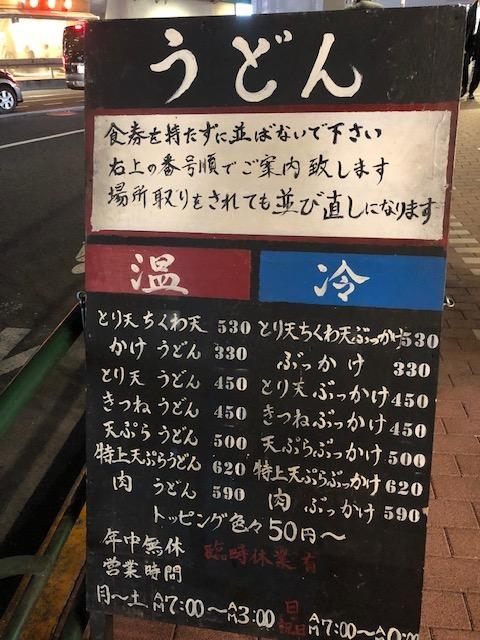 うどん
食券を持たずに並ばないで下さい
右上の番号順でご案内致します
場所取りをされても並び直しになります
温
とり天ちくわ天 530
かけうどん 330
とり天うどん 450
きつねうどん 450
天ぷらうどん 500
特上天ぷらうどん 620
肉うどん 590
冷
とり天ちくわ天ぶっかけ 530
ぶっかけ 330
とり天ぶっかけ 450
きつねぶっかけ 450
天ぷらぶっかけ 500
特上天ぷらぶっかけ 620
肉ぶっかけ 590
トッピング色々50円〜
年中無休 臨時休業有
営業時間
月〜土 AM7:00〜AM3:00 日 AM7:00〜